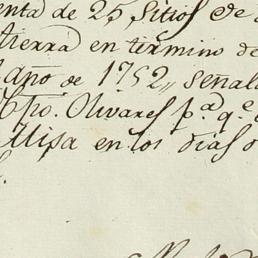 enta de 25 Sitios de
tierra en termino de
año de 1752,, señala
Olivares p.a q.e
Misa en los dias